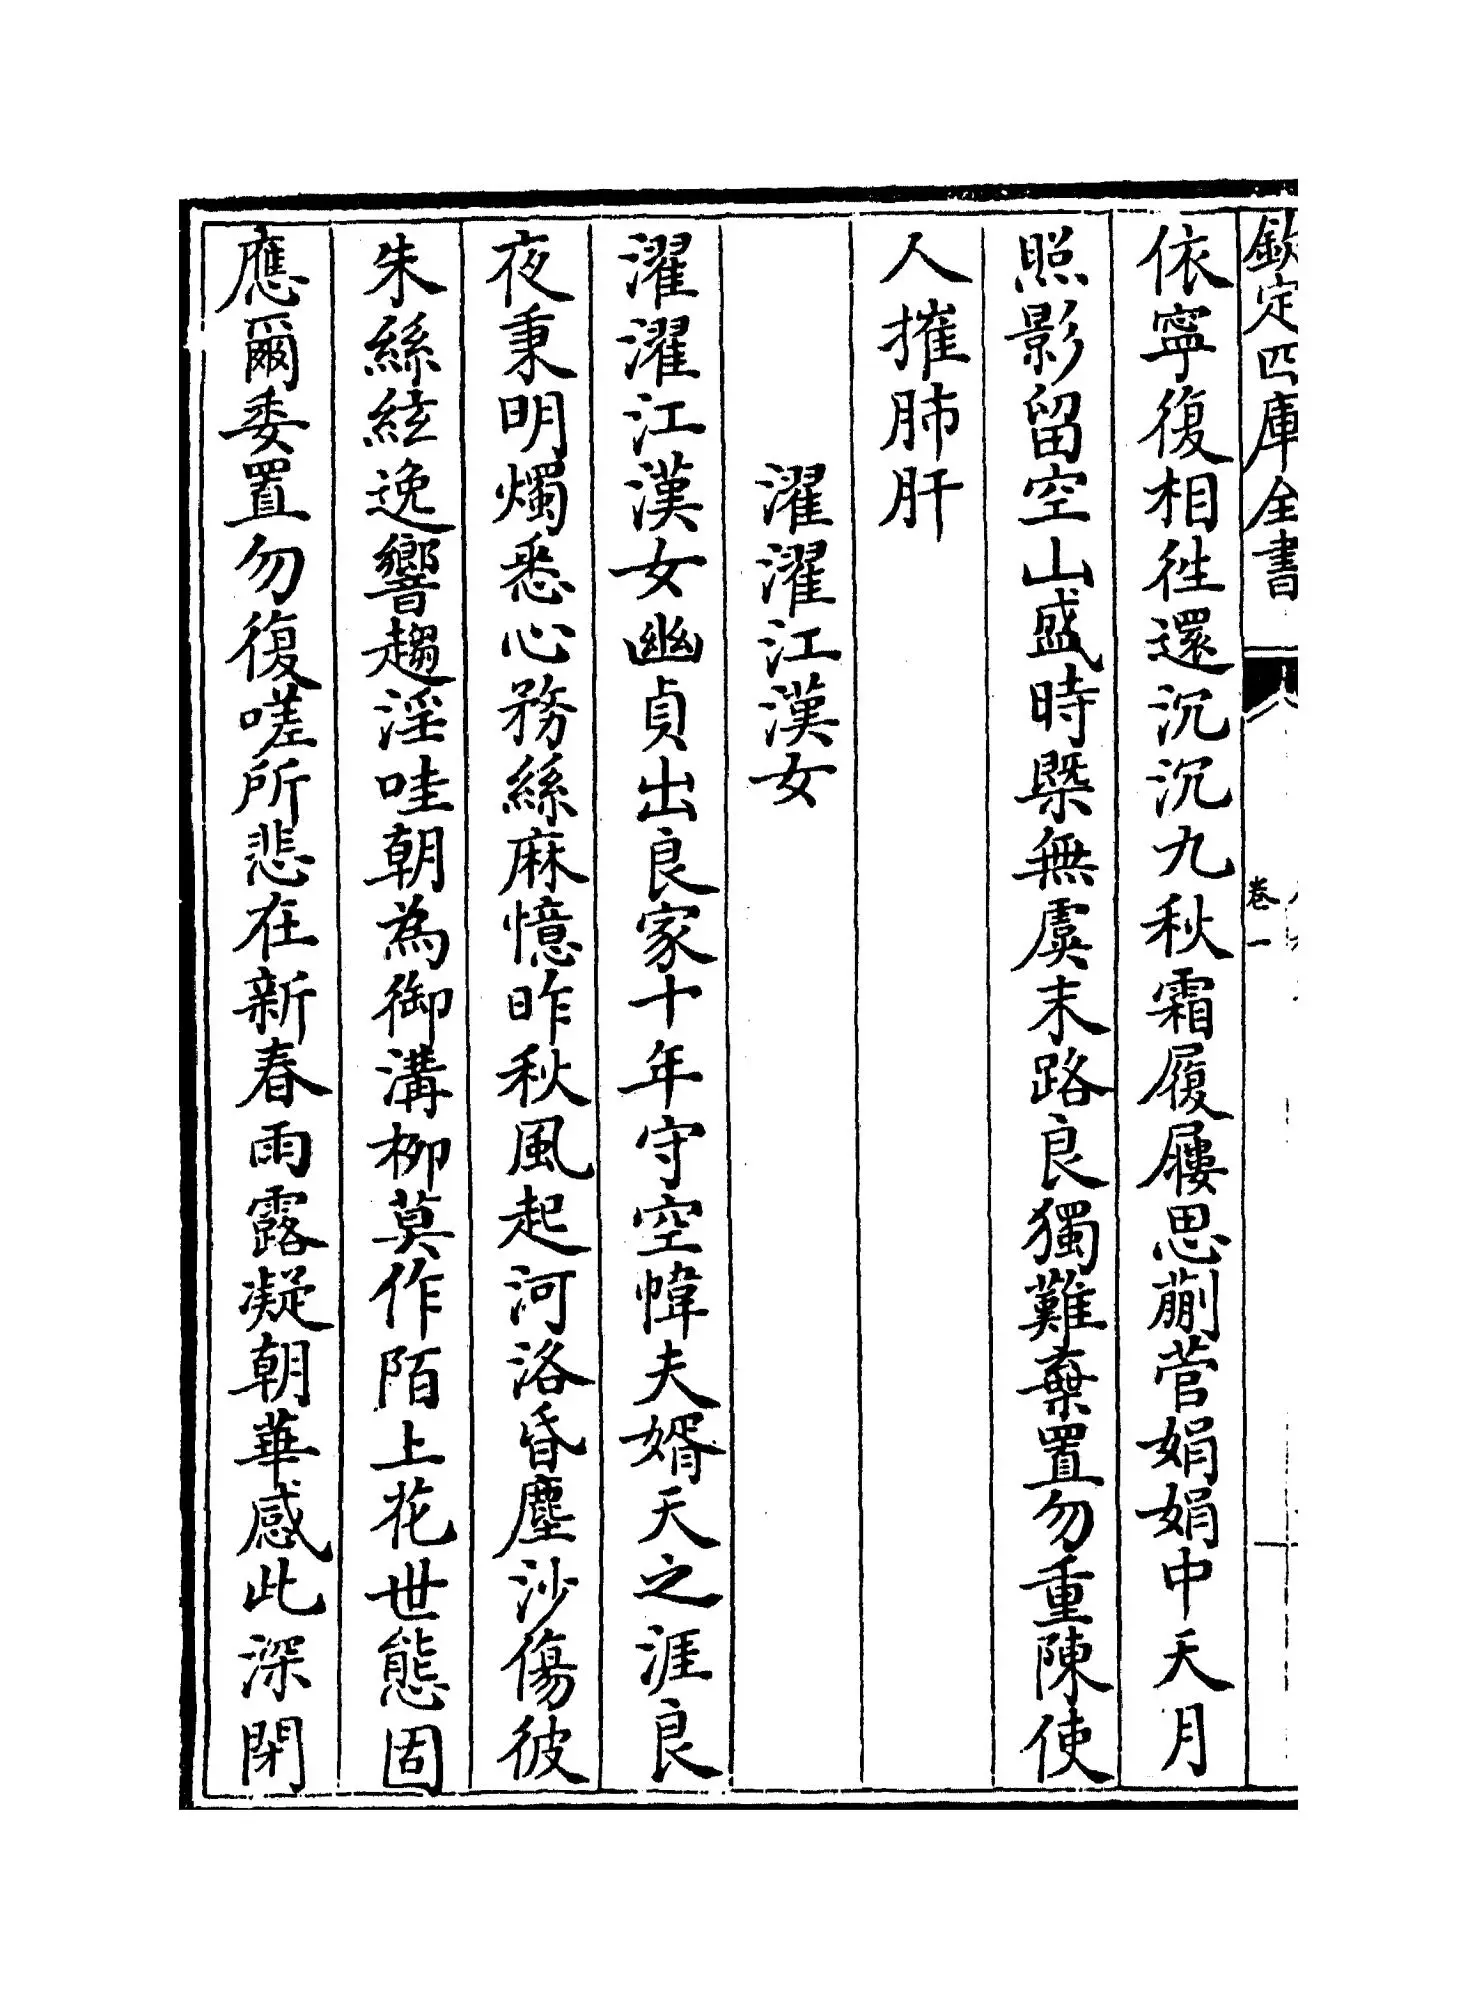 欽定四庫全書
卷一
依寧復相徃還沉沉九秋霜履屨思蒯菅娟娟中天月
照影留空山盛時槩無虞末路良獨難棄置勿重陳使
人摧肺肝
濯濯江漢女
濯濯江漢女幽貞出良家十年守空幃夫婿天之涯良
夜秉明燭悉心務絲麻憶昨秋風起河洛昏塵沙傷彼
朱絲絃逸響趨淫哇朝為御溝柳莫作陌上花世態固
應爾委置勿復嗟所悲在新春雨露凝朝華感此深閉